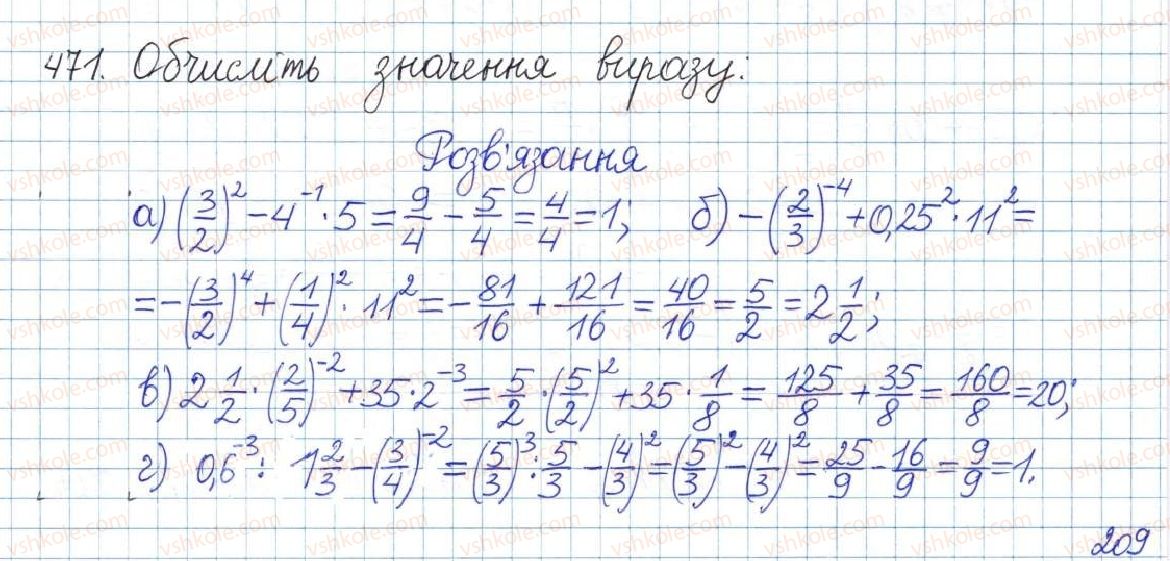 471. Обчисліть значення виразу:
Розв'язання
а) (3/2)^2 - 4^-1 · 5 = 9/4 - 5/4 = 4/4 = 1; б) -(2/3)^-4 + 0,25^2 · 11^2 =
= -(3/2)^4 + (1/4)^2 · 11^2 = -81/16 + 121/16 = 40/16 = 5/2 = 2 1/2;
в) 2 1/2 · (2/5)^-2 + 35 · 2^-3 = 5/2 · (5/2)^2 + 35 · 1/8 = 125/8 + 35/8 = 160/8 = 20;
г) 0,6^-3 : 1 2/3 - (3/4)^-2 = (5/3)^3 : 5/3 - (4/3)^2 = (5/3)^2 - (4/3)^2 = 25/9 - 16/9 = 9/9 = 1.
209